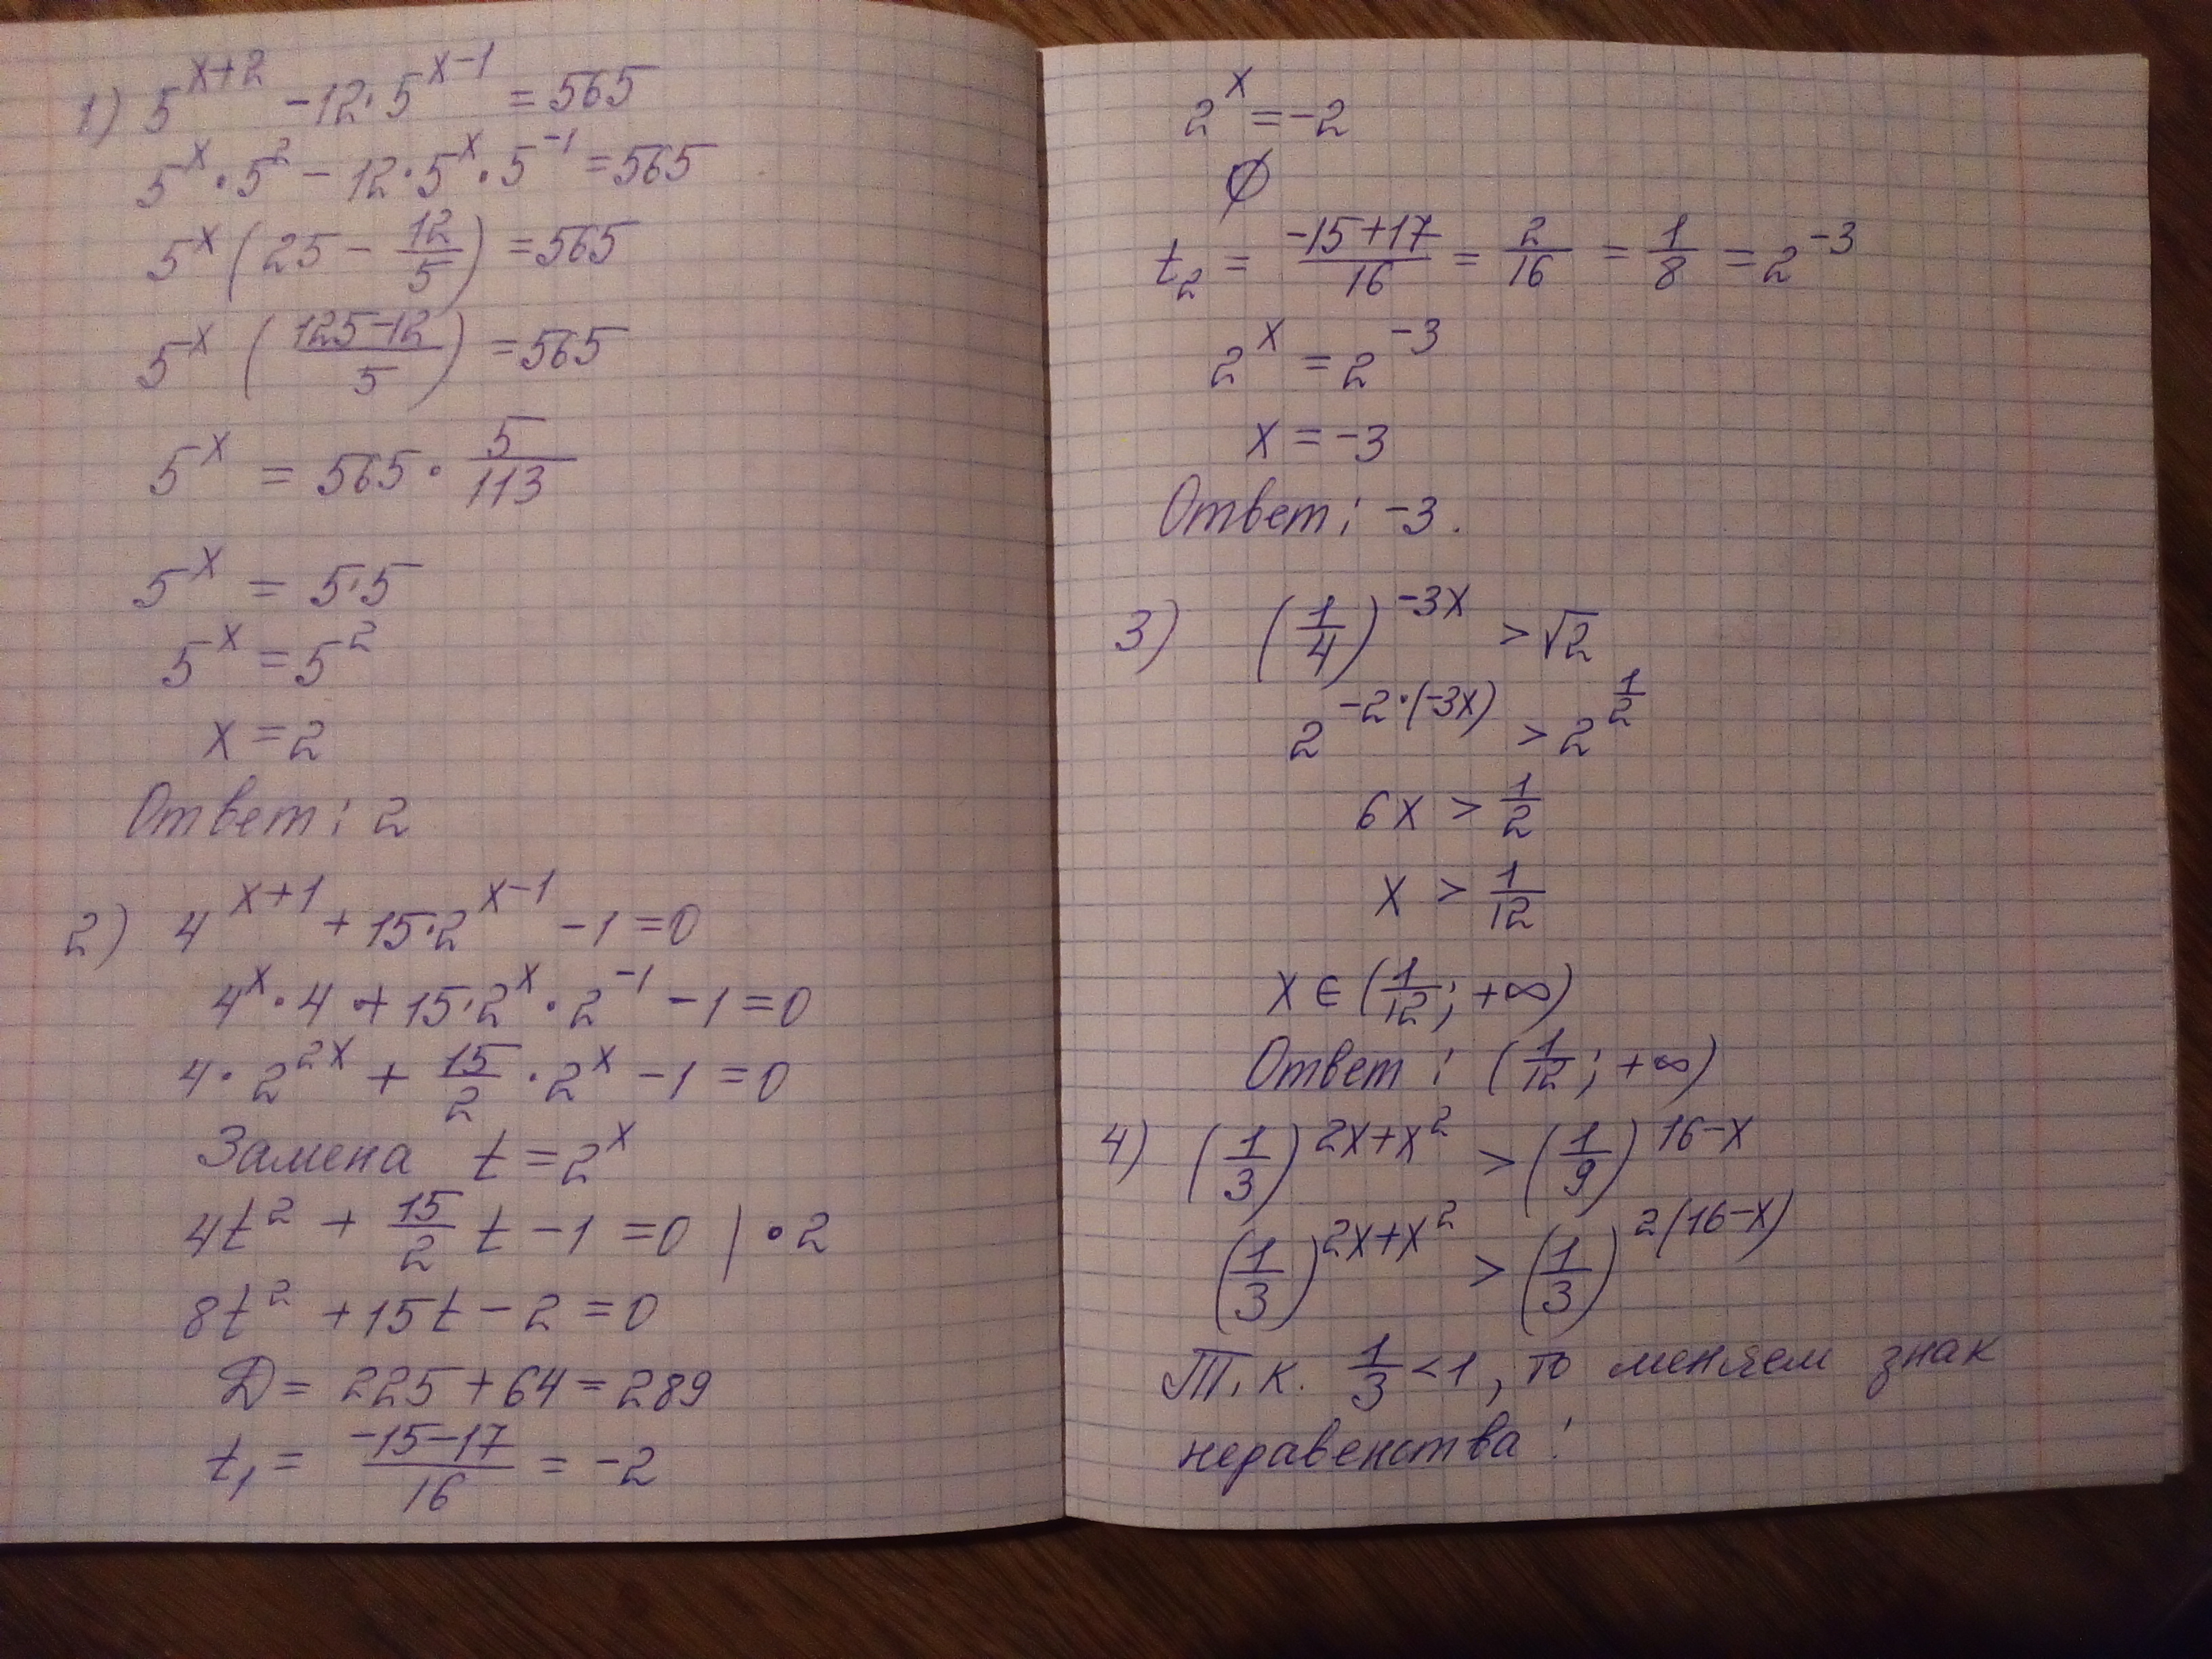 1) 5^(x+2) - 12·5^(x-1) = 565
5^x · 5^2 - 12·5^x · 5^(-1) = 565
5^x (25 - 12/5) = 565
5^x ((125-12)/5) = 565
5^x = 565 · 5/113
5^x = 5·5
5^x = 5^2
x = 2
Ответ: 2
2) 4^(x+1) + 15·2^(x-1) - 1 = 0
4^x · 4 + 15·2^x · 2^(-1) - 1 = 0
4 · 2^(2x) + 15/2 · 2^x - 1 = 0
Замена t = 2^x
4t^2 + 15/2 t - 1 = 0 | · 2
8t^2 + 15t - 2 = 0
D = 225 + 64 = 289
t₁ = (-15-17)/16 = -2
2^x = -2
∅
t₂ = (-15+17)/16 = 2/16 = 1/8 = 2^(-3)
2^x = 2^(-3)
x = -3
Ответ: -3.
3) (1/4)^(-3x) > √2
2^(-2·(-3x)) > 2^(1/2)
6x > 1/2
x > 1/12
x ∈ (1/12; +∞)
Ответ: (1/12; +∞)
4) (1/3)^(2x+x^2) > (1/9)^(16-x)
(1/3)^(2x+x^2) > (1/3)^(2(16-x))
Т.к. 1/3 < 1, то меняем знак
неравенства: